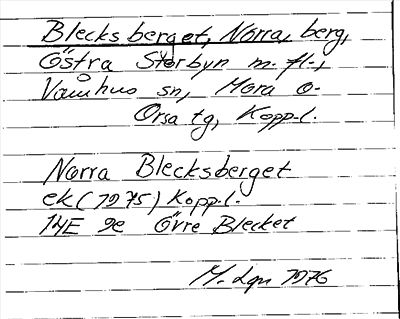 Blecksberget, Norra, berg,
Östra Storbyn m. fl.,
Våmhus sn, Mora o.
Orsa tg, Kopp.l.
Norra Blecksberget
ek (1975) Kopp.l.
14E 9e Övre Blecket
M. Lgn 1976